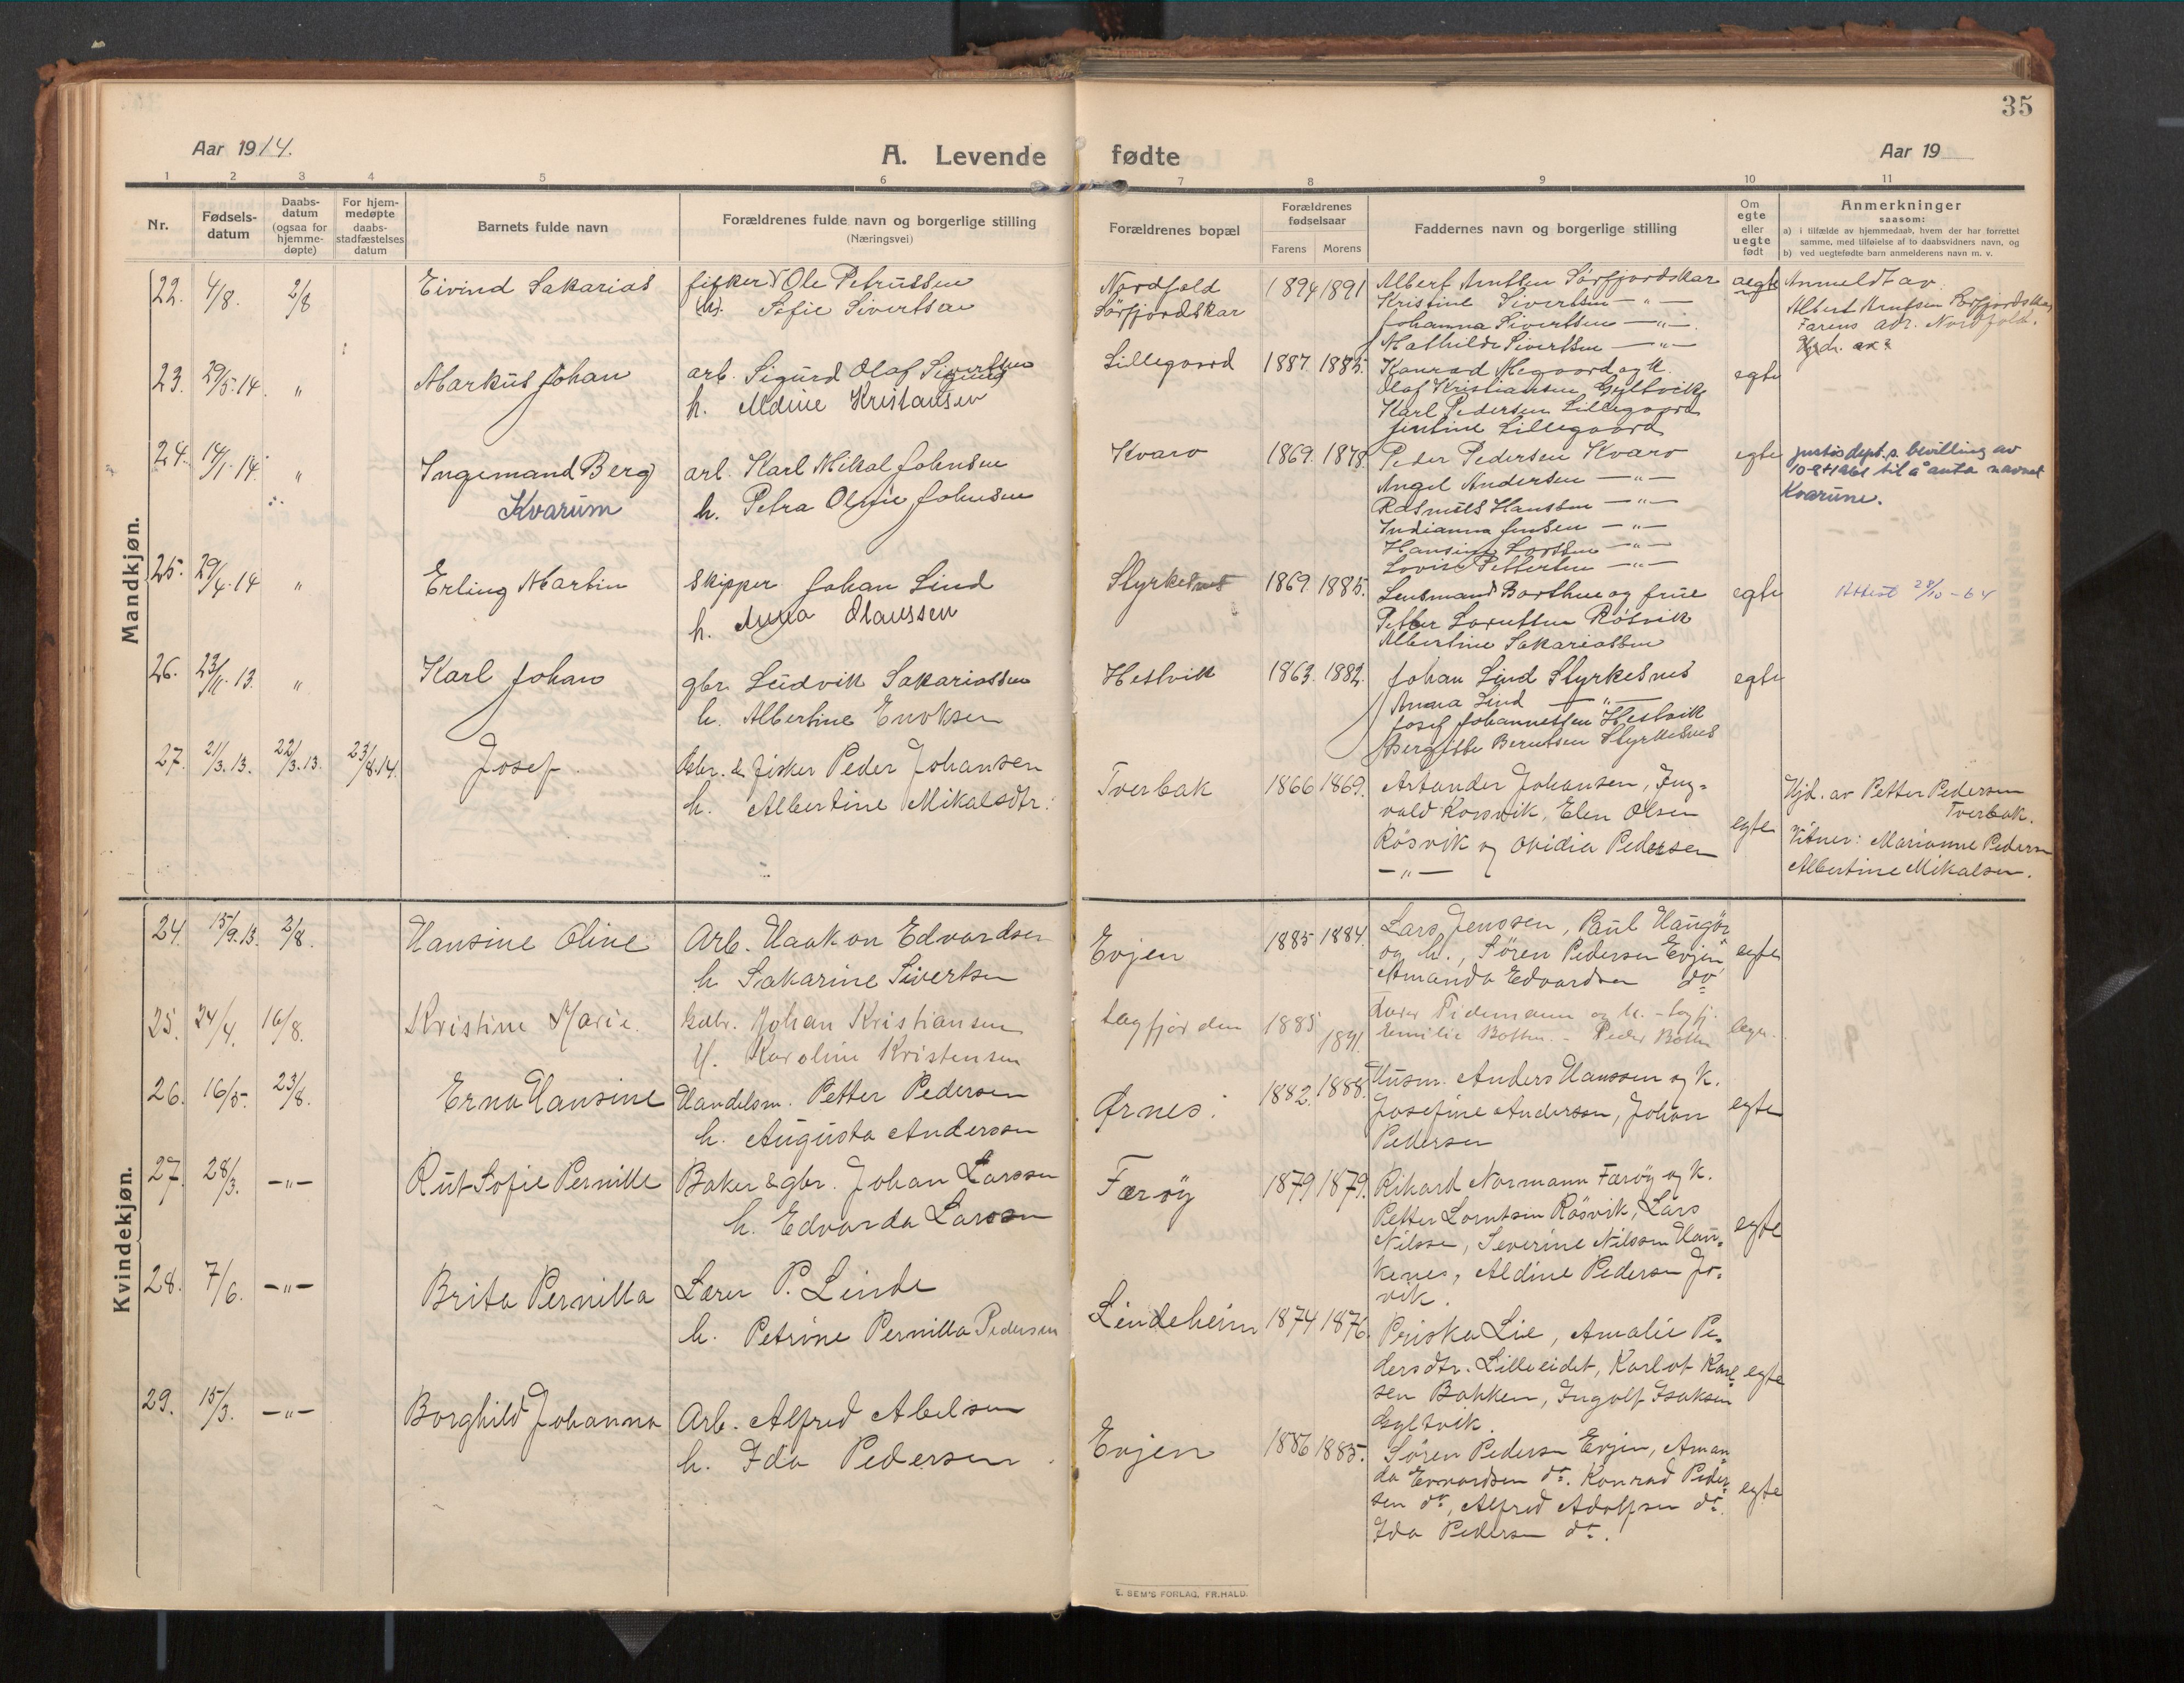 35
Aar 1914.
A. Levende fødte
Aar 19
1 2 3 4 5 6 7 8 9 10 11
Nr.
Fødsels-
datum
Daabs-
datum
(ogsaa for
hjemme-
døpte)
For hjem-
medøpte
daabs-
stadfæstelses
datum
Barnets fulde navn
Forældrenes fulde navn og borgerlige stilling
(Næringsvei)
Forældrenes bopæl
Forældrenes
fødselsaar
Farens Morens
Faddernes navn og borgerlige stilling
Om
egte
eller
uegte
født
Anmerkninger
saasom:
a) i tilfælde av hjemmedaab, hvem der har forrettet
samme, med tilføielse af to daabsvidners navn, og
b) ved uegtefødte barn anmelderens navn m. v.
Mandkjøn.
22. 4/8. 2/8 Eivind Sakarias
fisker Ole Petrussen
Sofie Sivertsen
Nordfold
Sørfjordskar
1894 1891
Albert Arntsen Sørfjordskar
Kristine Sivertsen — " —
Johanna Sivertsen — " —
Mathilde Sivertsen — " —
uegte
Anmeldt av
Albert Arntsen Sørfjordskar
Farens adr. Nordfold.
23. 29/5.14. " Markus Johan
arb. Sigurd Olaf Sivertsen
h. Aldine Kristansen
Lillegaard
1887 1885.
Konrad Megaard og k.
Olaf Kristiansen Gyltvik
Karl Pedersen Lillegaard
Jentine Lillegaard
egte
24. 14/1.14. " Ingemand Berg
Kvarum
arb. Karl Mikal Johnsen
h. Petra Oline Johnsen
Kvarv
1869. 1878.
Peder Pedersen Kvarv
Angel Andersen — " —
Rasmus Hanssen — " —
Indianna Jensen — " —
Hansine Larssen — " —
Lovise Pettersen — " —
egte
justisdept.s bevilling av
10-8-1961 til å anta navnet
Kvarum.
25. 29/4.14 " Erling Martin
skipper Johan Lind
h. Anna Olaussen
Styrkesnes
1869. 1885.
Lensmand Barthue og frue
Petter Lorntsen Røsvik
Albertine Sakariassen
egte
Attest 28/10-64
26. 23/11.13. " Karl Johan
gbr. Ludvik Sakariassen
h. Albertine Enoksen
Hestvik
1863. 1882.
Johan Lind Styrkesnes
Anna Lind — " —
Josef Johannessen Hestvik
Bergitte Berntsen Styrkesnes
egte
27. 21/3.13. 22/3.13. 23/8.14. Josef.
Gbr. & fisker Peder Johansen
h. Albertine Mikalsdtr.
Tverbak
1866 1869.
Artander Johansen, Ing-
vald Korsvik, Elen Olsen
Røsvik og Ovidia Pedersen
— " —
egte
Hjd. av Petter Pedersen
Tverbak.
Vitner: Marianne Pedersen
Albertine Mikalsen.
Kvindekjøn.
24. 15/9.13. 2/8. Hansine Oline
Arb. Haakon Edvardsen
h Sakarine Sivertsen
Evjen
1885 1884.
Lars Jenssen, Paul Haugør
og h., Søren Pedersen Evjen,
Amanda Edvardsen do
egte
25. 24/4. 16/8. Kristine Marie.
Gdbr. Johan Kristiansen
H. Karoline Kristensen
Lagfjorden
1885 1891.
Lærer Tidemann og h. - Lagfj.
Emilie Botten. - Peder Botten
26. 16/5. 23/8. Erna Hansine
Handelsm. Petter Pedersen
h. Augusta Andersen
Ørnes.
1882. 1888.
Husm. Anders Hanssen og k.
Josefine Andersen, Johan
Pedersen
egte
27. 28/3. — " — Rut Sofie Pernille
Baker & gbr. Johan Larssen
h. Edvarda Larssen
Færøy
1879 1879.
Rikard Normann Færøy og k.
Petter Lorntsen Røsvik, Lars
Nilssen, Severine Nilssen Hau-
kenes, Aldine Pedersen Jo-
vik.
egte
28. 7/6. — " — Brita Pernilla
Lærer P. Linde
h. Petrine Pernilla Pedersen
Lindeheim
1874 1876.
Priska Lie, Amalie Pe-
dersdtr. Lilleeidet, Karlot Karl-
sen Bakken, Ingolf Isaksen
Gyltvik.
egte
29. 15/3. — " — Borghild Johanna
Arb. Alfred Abelsen
h. Ida Pedersen
Evjen
1886 1885.
Søren Pedersen Evjen, Aman-
da Edvardsen do. Konrad Peder-
sen do, Alfred Adolfsen do.
Ida Pedersen do.
egte
E. SEM'S FORLAG, FR.HALD.